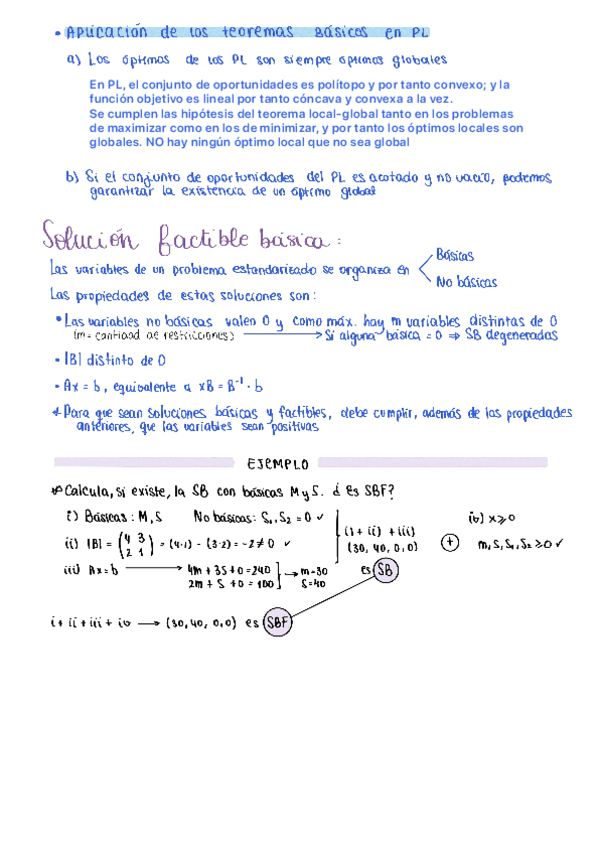 • Aplicación de los teoremas básicos en PL
a) Los óptimos de los PL son siempre óptimos globales
En PL, el conjunto de oportunidades es polítopo y por tanto convexo; y la
función objetivo es lineal por tanto cóncava y convexa a la vez.
Se cumplen las hipótesis del teorema local-global tanto en los problemas
de maximizar como en los de minimizar, y por tanto los óptimos locales son
globales. NO hay ningún óptimo local que no sea global
b) Si el conjunto de oportunidades del PL es acotado y no vacío, podemos
garantizar la existencia de un óptimo global
Solución factible básica:
Las variables de un problema estandarizado se organiza en < Básicas
No básicas
Las propiedades de estas soluciones son:
• Las variables no básicas valen 0 y como máx. hay m variables distintas de 0
(m = cantidad de restricciones) → Si alguna básica = 0 ⇒ SB degeneradas
• |B| distinto de 0
• Ax = b, equivalente a xB = B⁻¹ · b
* Para que sean soluciones básicas y factibles, debe cumplir, además de las propiedades
anteriores, que las variables sean positivas
EJEMPLO
Calcula, si existe, la SB con básicas M y S. ¿ Es SBF?
i) Básicas: M, S No básicas: S₁, S₂ = 0 ✓
ii) |B| = (4 3 2 1) = (4·1) - (3·2) = -2 ≠ 0 ✓
iii) Ax = b → 4m + 3S + 0 = 240
2m + S + 0 = 100 → m=30
S=40
(i + ii) + iii)
(30, 40, 0, 0)
es SB
+
iv) x ≥ 0
m, S, S₁, S₂ ≥ 0 ✓
i + ii + iii + iv → (30, 40, 0, 0) es SBF